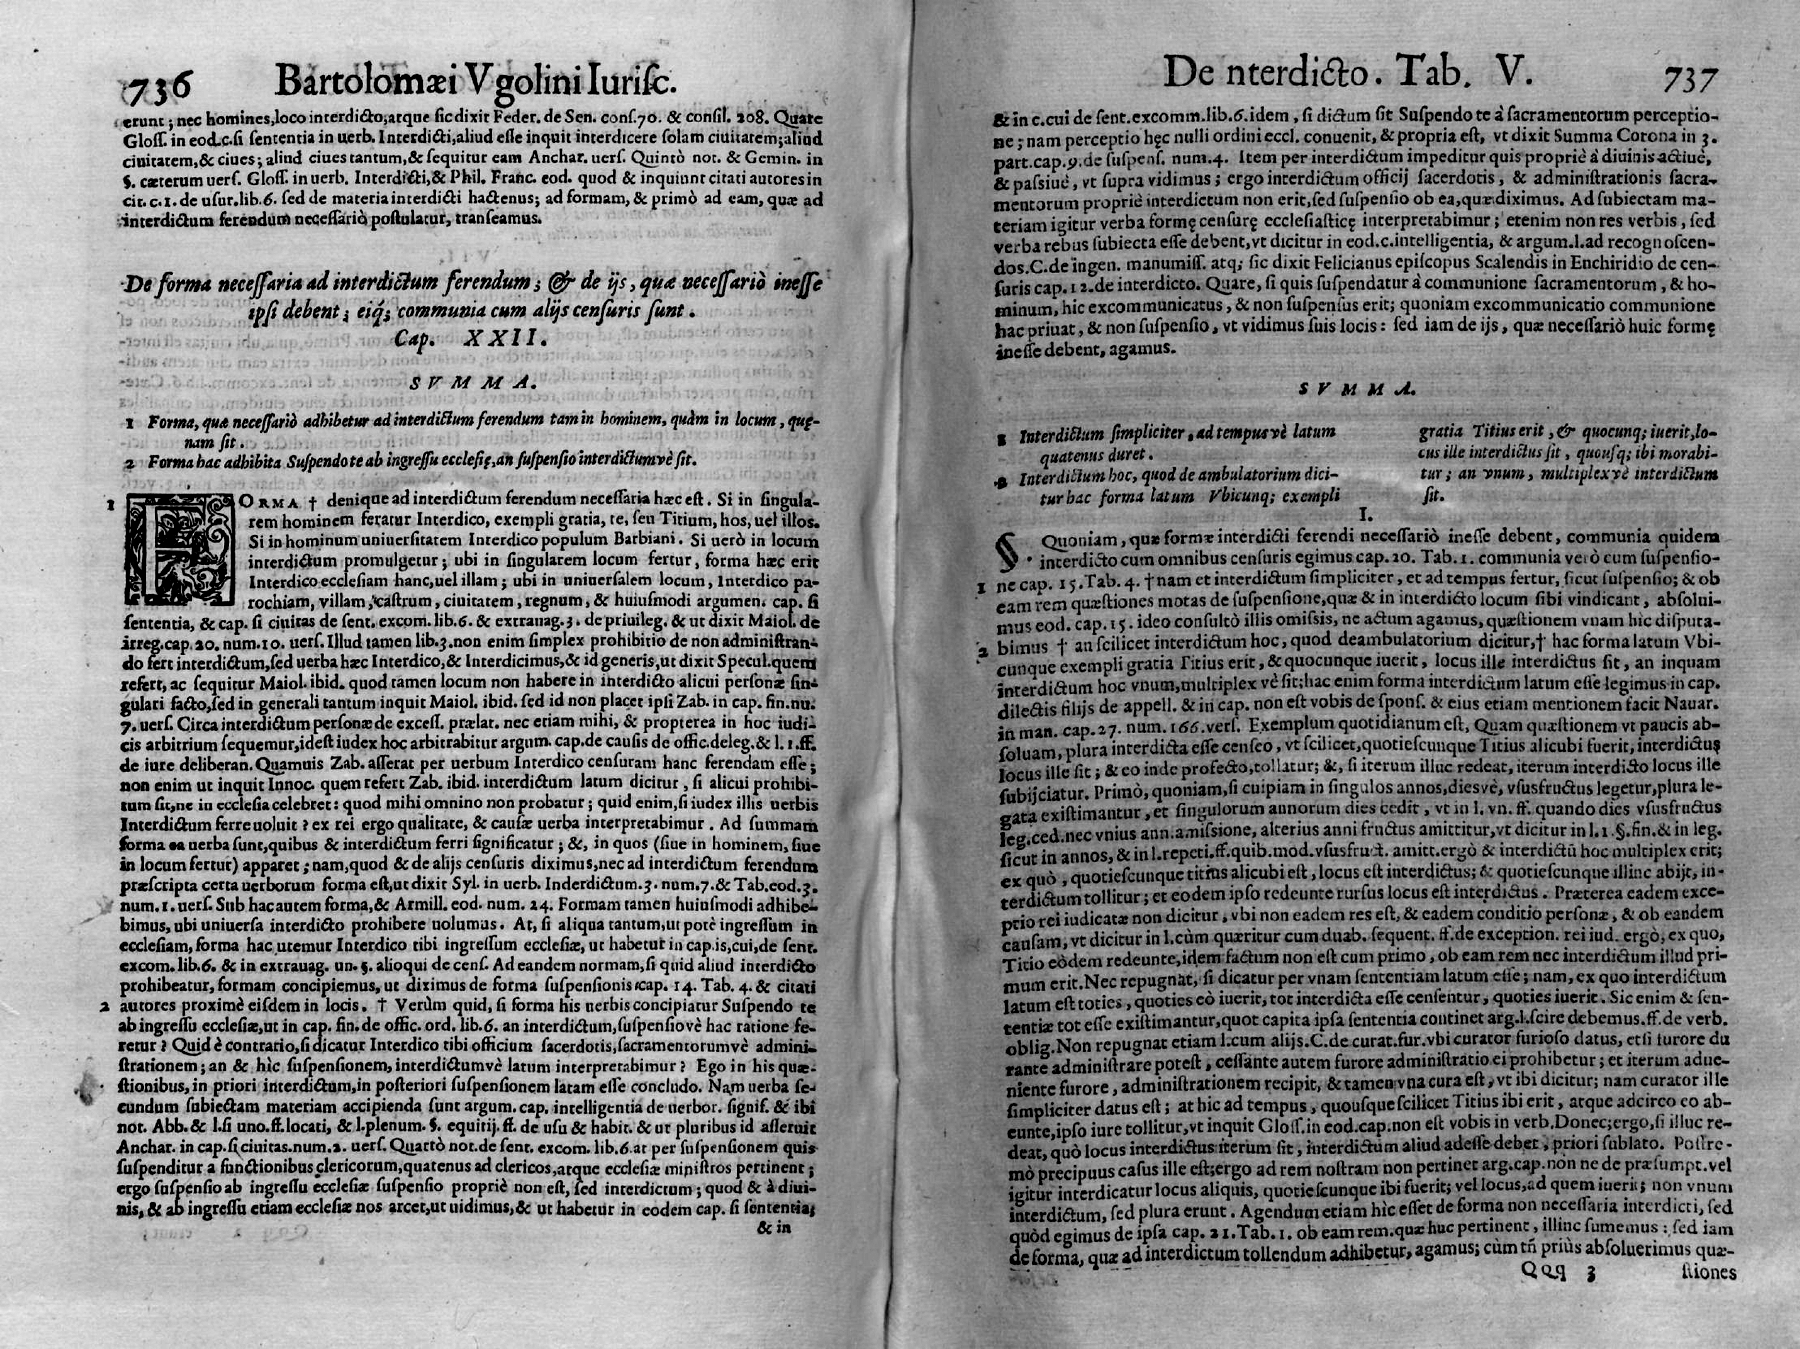 736 Bartolomæi Vgolini Iurisc.
erunt; nec homines, loco interdicto; atque sic dixit Feder. de Sen. cons. 70. & consil. 208. Quare
Gloss. in eod.c.si sententia in uerb. Interdicti, aliud esse inquit interdicere solam ciuitatem; aliud
ciuitatem, & ciues; aliud ciues tantum, & sequitur eam Anchar. uers. Quintò not. & Gemin. in
§. cæterum uers. Gloss. in uerb. Interdicti, & Phil. Franc. eod. quod & inquiunt citati autores in
cit. c. 1. de usur. lib. 6. sed de materia interdicti hactenus; ad formam, & primò ad eam, quæ ad
interdictum ferendum necessariò postulatur, transeamus.
De forma necessaria ad interdictum ferendum; & de ijs, quæ necessariò inesse
ipsi debent; eiq́; communia cum alijs censuris sunt.
Cap. XXII.
SVMMA.
1 Forma, quæ necessariò adhibetur ad interdictum ferendum tam in hominem, quàm in locum, quę-
nam sit.
2 Forma hac adhibita Suspendo te ab ingressu ecclesię, an suspensio interdictumvè sit.
1 FORMA † denique ad interdictum ferendum necessaria hæc est. Si in singula-
rem hominem feratur Interdico, exempli gratia, te, seu Titium, hos, uel illos.
Si in hominum uniuersitatem Interdico populum Barbiani. Si uerò in locum
interdictum promulgetur; ubi in singularem locum fertur, forma hæc erit
Interdico ecclesiam hanc, uel illam; ubi in uniuersalem locum, Interdico pa-
rochiam, villam, castrum, ciuitatem, regnum, & huiusmodi argumen. cap. si
sententia, & cap. si ciuitas de sent. excom. lib. 6. & extrauag. 3. de priuileg. & ut dixit Maiol. de
irreg. cap. 20. num. 10. uers. Illud tamen lib. 3. non enim simplex prohibitio de non administran-
do fert interdictum, sed uerba hæc Interdico, & Interdicimus, & id generis, ut dixit Specul. quem
refert, ac sequitur Maiol. ibid. quod tamen locum non habere in interdicto alicui personæ sin-
gulari facto, sed in generali tantum inquit Maiol. ibid. sed id non placet ipsi Zab. in cap. fin. nu.
7. uers. Circa interdictum personæ de excess. prælat. nec etiam mihi, & propterea in hoc iudi-
cis arbitrium sequemur, idest iudex hoc arbitrabitur argum. cap. de causis de offic. deleg. & l. 1. ff.
de iure deliberan. Quamuis Zab. asserat per uerbum Interdico censuram hanc ferendam esse;
non enim ut inquit Innoc. quem refert Zab. ibid. interdictum latum dicitur, si alicui prohibi-
tum sit, ne in ecclesia celebret: quod mihi omnino non probatur; quid enim, si iudex illis uerbis
Interdictum ferre uoluit? ex rei ergo qualitate, & causæ uerba interpretabimur. Ad summam
forma ea uerba sunt, quibus & interdictum ferri significatur; &, in quos (siue in hominem, siue
in locum fertur) apparet; nam, quod & de alijs censuris diximus, nec ad interdictum ferendum
præscripta certa uerborum forma est, ut dixit Syl. in uerb. Inderdictum. 3. num. 7. & Tab. eod. 3.
num. 1. uers. Sub hac autem forma, & Armill. eod. num. 24. Formam tamen huiusmodi adhibe-
bimus, ubi uniuersa interdicto prohibere uolumus. At, si aliqua tantum, ut potè ingressum in
ecclesiam, forma hac utemur Interdico tibi ingressum ecclesiæ, ut habetut in cap. is, cui, de sent.
excom. lib. 6. & in extrauag. un. §. alioqui de cens. Ad eandem normam, si quid aliud interdicto
prohibeatur, formam concipiemus, ut diximus de forma suspensionis cap. 14. Tab. 4. & citati
2 autores proximè eisdem in locis. † Verùm quid, si forma his uerbis concipiatur Suspendo te
ab ingressu ecclesiæ, ut in cap. fin. de offic. ord. lib. 6. an interdictum, suspensiovè hac ratione fe-
retur? Quid è contratio, si dicatur Interdico tibi officium sacerdotis, sacramentorumvè admini-
strationem; an & hîc suspensionem, interdictumvè latum interpretabimur? Ego in his quæ-
stionibus, in priori interdictum, in posteriori suspensionem latam esse concludo. Nam uerba se-
cundum subiectam materiam accipienda sunt argum. cap. intelligentia de uerbor. signif. & ibi
not. Abb. & l. si uno. ff. locati, & l. plenum. §. equitij. ff. de usu & habit. & ut pluribus id asseruit
Anchar. in cap. si ciuitas. num. 2. uers. Quartò not. de sent. excom. lib. 6. at per suspensionem quis
suspenditur a functionibus clericorum, quatenus ad clericos, atque ecclesiæ ministros pertinent;
ergo suspensio ab ingressu ecclesiæ suspensio propriè non est, sed interdictum; quod & à diui-
nis, & ab ingressu etiam ecclesiæ nos arcet, ut uidimus, & ut habetur in eodem cap. si sententia;
& in
De nterdicto. Tab. V. 737
& in c. cui de sent. excomm. lib. 6. idem, si dictum sit Suspendo te à sacramentorum perceptio-
ne; nam perceptio hęc nulli ordini eccl. conuenit, & propria est, vt dixit Summa Corona in 3.
part. cap. 9. de suspens. num. 4. Item per interdictum impeditur quis propriè à diuinis actiuè,
& passiuè, vt supra vidimus; ergo interdictum officij sacerdotis, & administrationis sacra-
mentorum propriè interdictum non erit, sed suspensio ob ea, quæ diximus. Ad subiectam ma-
teriam igitur verba formę censurę ecclesiasticę interpretabimur; etenim non res verbis, sed
verba rebus subiecta esse debent, vt dicitur in eod. c. intelligentia, & argum. l. ad recognoscen-
dos. C. de ingen. manumiss. atq; sic dixit Felicianus episcopus Scalendis in Enchiridio de cen-
suris cap. 12. de interdicto. Quare, si quis suspendatur à communione sacramentorum, & ho-
minum, hic excommunicatus, & non suspensus erit; quoniam excommunicatio communione
hac priuat, & non suspensio, vt vidimus suis locis: sed iam de ijs, quæ necessariò huic formę
inesse debent, agamus.
SVMMA.
1 Interdictum simpliciter, ad tempusvè latum
quatenus duret.
2 Interdictum hoc, quod de ambulatorium dici-
tur hac forma latum Vbicunq; exempli
gratia Titius erit, & quocunq; iuerit, lo-
cus ille interdictus sit, quousq; ibi morabi-
tur; an vnum, multiplexvè interdictum
sit.
I.
§. Quoniam, quæ formæ interdicti ferendi necessariò inesse debent, communia quidem
interdicto cum omnibus censuris egimus cap. 20. Tab. 1. communia verò cum suspensio-
1 ne cap. 15. Tab. 4. † nam et interdictum simpliciter, et ad tempus fertur, sicut suspensio; & ob
eam rem quæstiones motas de suspensione, quæ & in interdicto locum sibi vindicant, absolui-
mus eod. cap. 15. ideo consultò illis omissis, ne actum agamus, quæstionem vnam hic disputa-
2 bimus † an scilicet interdictum hoc, quod deambulatorium dicitur, † hac forma latum Vbi-
cunque exempli gratia Titius erit, & quocunque iuerit, locus ille interdictus sit, an inquam
interdictum hoc vnum, multiplex vè sit; hac enim forma interdictum latum esse legimus in cap.
dilectis filijs de appell. & in cap. non est vobis de spons. & eius etiam mentionem facit Nauar.
in man. cap. 27. num. 166. vers. Exemplum quotidianum est, Quam quæstionem vt paucis ab-
soluam, plura interdicta esse censeo, vt scilicet, quotiescunque Titius alicubi fuerit, interdictus
locus ille sit; & eo inde profecto, tollatur; &, si iterum illuc redeat, iterum interdicto locus ille
subijciatur. Primò, quoniam, si cuipiam in singulos annos, diesvè, vsusfructus legetur, plura le-
gata existimantur, et singulorum annorum dies cedit, vt in l. vn. ff. quando dies vsusfructus
leg. ced. nec vnius ann. amissione, alterius anni fructus amittitur, vt dicitur in l. 1. §. fin. & in leg.
sicut in annos, & in l. repeti. ff. quib. mod. vsusfruct. amitt. ergò & interdictū hoc multiplex erit;
ex quò, quotiescunque titius alicubi est, locus est interdictus; & quotiescunque illinc abijt, in-
terdictum tollitur; et eodem ipso redeunte rursus locus est interdictus. Præterea eadem exce-
ptio rei iudicatæ non dicitur, vbi non eadem res est, & eadem conditio personæ, & ob eandem
causam, vt dicitur in l. cùm quæritur cum duab. sequent. ff. de exception. rei iud. ergò, ex quo,
Titio eòdem redeunte, idem factum non est cum primo, ob eam rem nec interdictum illud pri-
mum erit. Nec repugnat, si dicatur per vnam sententiam latum esse; nam, ex quo interdictum
latum est toties, quoties eò iuerit, tot interdicta esse censentur, quoties iuerit. Sic enim & sen-
tentiæ tot esse existimantur, quot capita ipsa sententia continet arg. l. scire debemus. ff. de verb.
oblig. Non repugnat etiam l. cum alijs. C. de curat. fur. vbi curator furioso datus, etsi furore du
rante administrare potest, cessante autem furore administratio ei prohibetur; et iterum adue-
niente furore, administrationem recipit, & tamen vna cura est, vt ibi dicitur; nam curator ille
simpliciter datus est; at hic ad tempus, quousque scilicet Titius ibi erit, atque adcirco eo ab-
eunte, ipso iure tollitur, vt inquit Gloss. in eod. cap. non est vobis in verb. Donec; ergo, si illuc re-
deat, quò locus interdictus iterum sit, interdictum aliud adesse debet, priori sublato. Postre-
mò precipuus casus ille est; ergo ad rem nostram non pertinet arg. cap. non ne de præsumpt. vel
igitur interdicatur locus aliquis, quotiescunque ibi fuerit; vel locus, ad quem iuerit; non vnum
interdictum, sed plura erunt. Agendum etiam hic esset de forma non necessaria interdicti, sed
quòd egimus de ipsa cap. 21. Tab. 1. ob eam rem. quæ huc pertinent, illinc sumemus: sed iam
de forma, quæ ad interdictum tollendum adhibetur, agamus; cùm tñ priùs absoluerimus quæ-
Qqq 3 stiones